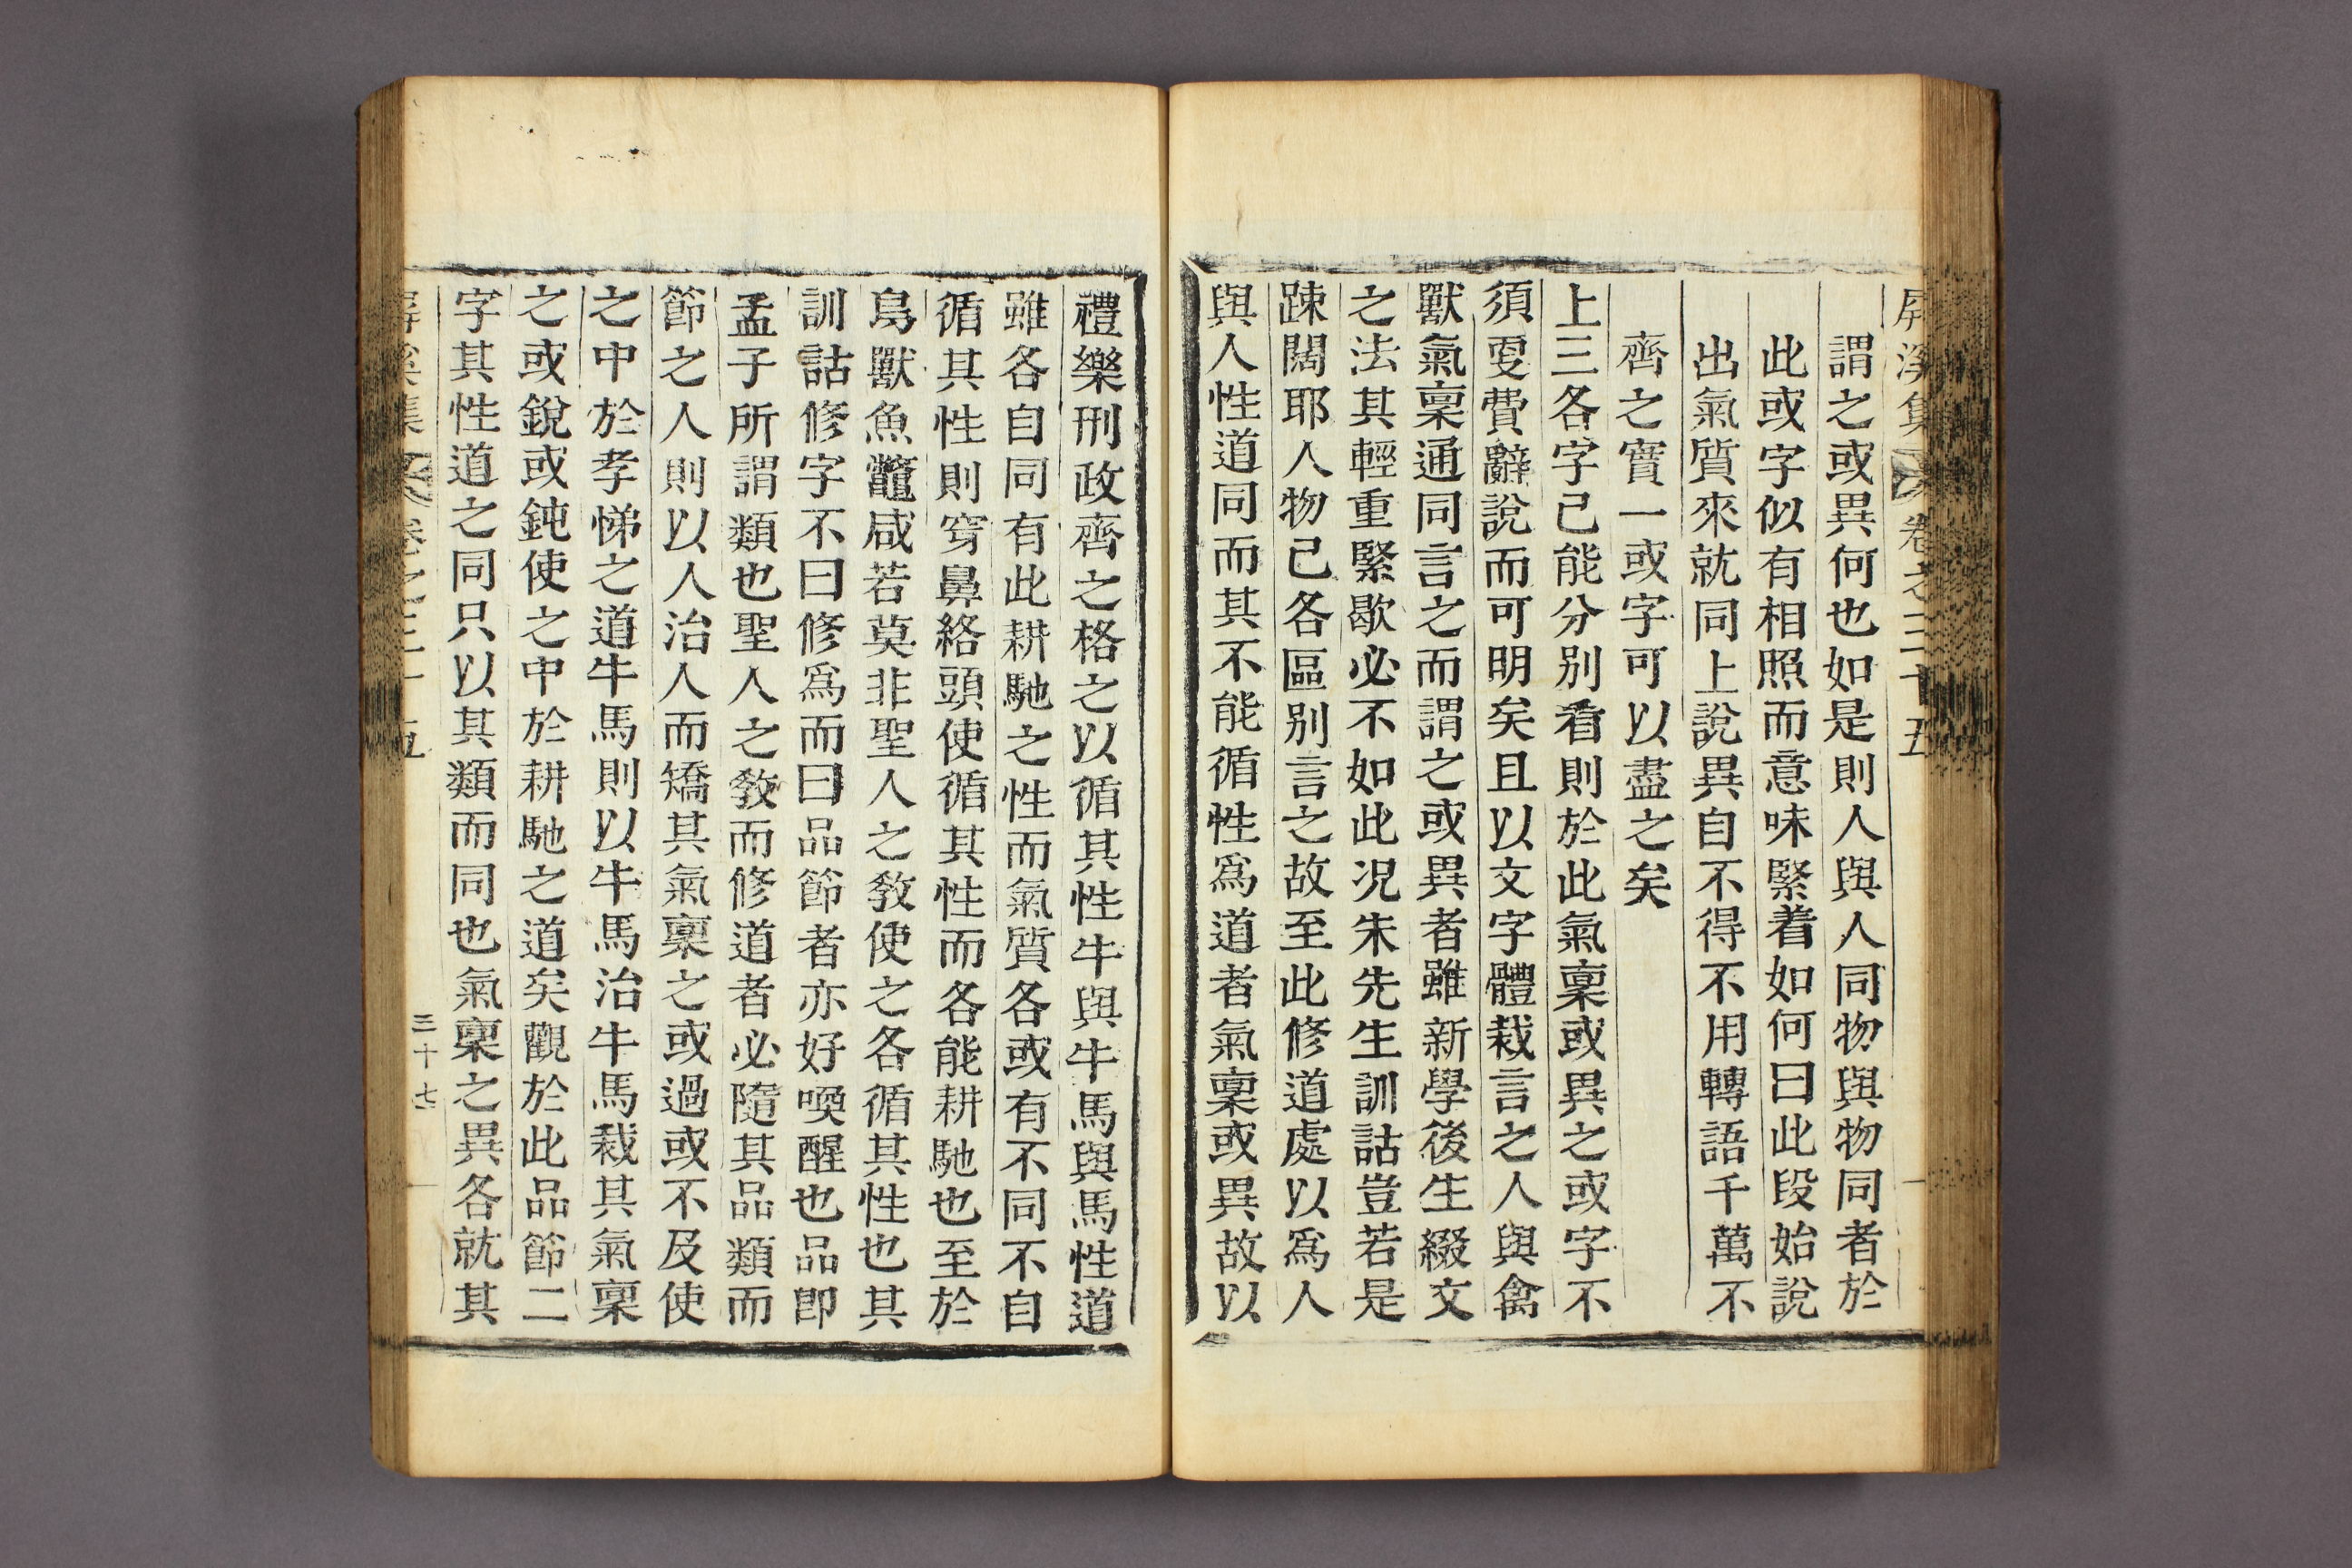 屛溪集 卷之三十五
謂之或異何也如是則人與人同物與物同者於
此或字似有相照而意味緊着如何曰此段始說
出氣質來就同上說異自不得不用轉語千萬不
齊之實一或字可以盡之矣
上三各字已能分別看則於此氣稟或異之或字不
須更費辭說而可明矣且以文字體裁言之人與禽
獸氣稟通同言之而謂之或異者雖新學後生綴文
之法其輕重緊歇必不如此况朱先生訓詁豈若是
踈闊耶人物已各區別言之故至此修道處以爲人
與人性道同而其不能循性爲道者氣稟或異故以
禮樂刑政齊之格之以循其性牛與牛馬與馬性道
雖各自同有此耕馳之性而氣質各或有不同不自
循其性則穿鼻絡頭使循其性而各能耕馳也至於
鳥獸魚鼈咸若莫非聖人之敎使之各循其性也其
訓詁修字不曰修爲而曰品節者亦好喚醒也品卽
孟子所謂類也聖人之敎而修道者必隨其品類而
節之人則以人治人而矯其氣稟之或過或不及使
之中於孝悌之道牛馬則以牛馬治牛馬裁其氣稟
之或銳或鈍使之中於耕馳之道矣觀於此品節二
字其性道之同只以其類而同也氣稟之異各就其
屛溪集 卷之三十五 三十七